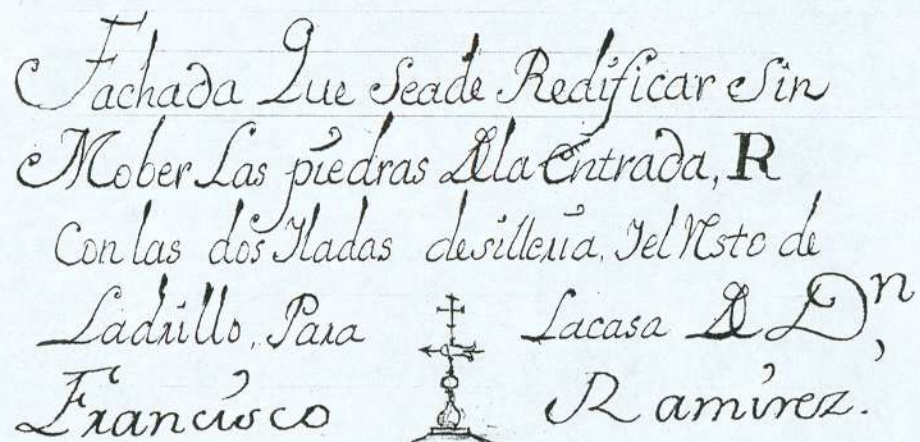 Fachada Que Seade Redificar Sin
Mober Las piedras Dla Entrada, R
Con las dos Yladas desilleria, Yel Rsto de
Ladrillo, Para Lacasa D Dⁿ,
Francisco Ramirez.